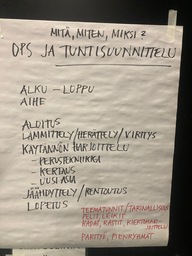 MITÄ, MITEN, MIKSI?
OPS JA TUNTISUUNNITTELU
ALKU – LOPPU
AIHE
ALOITUS
LÄMMITTELY/HERÄTTELY/VIRITYS
KÄYTÄNNÖN HARJOITTELU
- PERUSTEKNIIKKA
- KERTAUS
- UUSI ASIA
JÄÄHDYTTELY/RENTOUTUS
LOPETUS
TEEMATUNNIT/TARINALLISUUS
PELIT, LEIKIT
RADAT, RASTIT, KIERTOHAR-
JOITTELU
PARITYÖ, PIENRYHMÄT